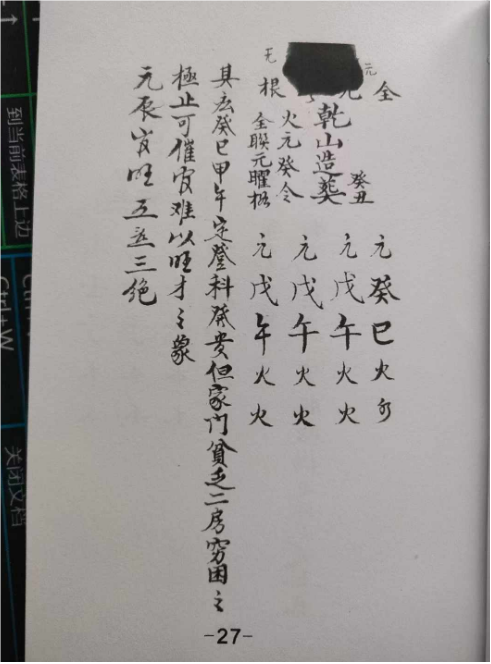 全
元癸巳火
癸丑
元戊午火火
乾山造葬
元戊午火火
火元癸令
元戊午火火
根
全聯元曜格
癸巳甲午定登科發贵但家门貧乏二房穷困之
極止可催官难以旺才之象
元辰官旺五
三絕
-27-
到当前表格上边
Ctrl+W
关闭文档